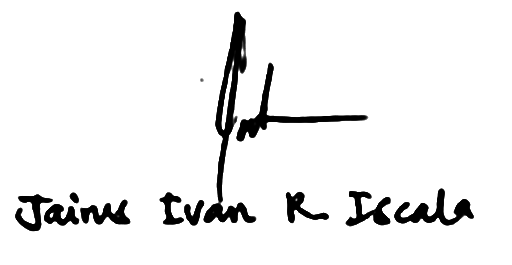 Jairus Ivan R. Iscala